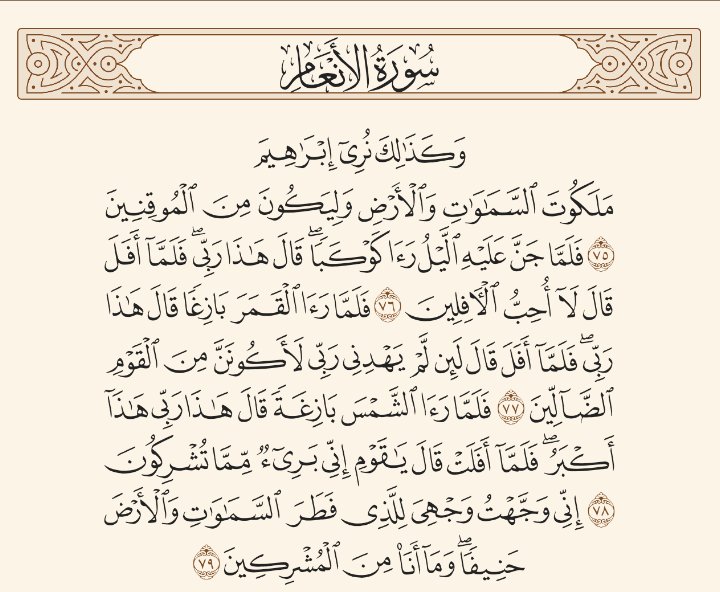 سُورَةُ الأَنْعَامِ
وَكَذَٰلِكَ نُرِىٓ إِبْرَٰهِيمَ
مَلَكُوتَ ٱلسَّمَٰوَٰتِ وَٱلْأَرْضِ وَلِيَكُونَ مِنَ ٱلْمُوقِنِينَ
٧٥ فَلَمَّا جَنَّ عَلَيْهِ ٱلَّيْلُ رَءَا كَوْكَبًاۖ قَالَ هَٰذَا رَبِّىۖ فَلَمَّآ أَفَلَ
قَالَ لَآ أُحِبُّ ٱلْـَٔافِلِينَ ٧٦ فَلَمَّا رَءَا ٱلْقَمَرَ بَازِغًا قَالَ هَٰذَا
رَبِّىۖ فَلَمَّآ أَفَلَ قَالَ لَئِن لَّمْ يَهْدِنِى رَبِّى لَأَكُونَنَّ مِنَ ٱلْقَوْمِ
ٱلضَّآلِّينَ ٧٧ فَلَمَّا رَءَا ٱلشَّمْسَ بَازِغَةً قَالَ هَٰذَا رَبِّى هَٰذَآ
أَكْبَرُۖ فَلَمَّآ أَفَلَتْ قَالَ يَٰقَوْمِ إِنِّى بَرِىٓءٌ مِّمَّا تُشْرِكُونَ
٧٨ إِنِّى وَجَّهْتُ وَجْهِىَ لِلَّذِى فَطَرَ ٱلسَّمَٰوَٰتِ وَٱلْأَرْضَ
حَنِيفًاۖ وَمَآ أَنَا۠ مِنَ ٱلْمُشْرِكِينَ ٧٩